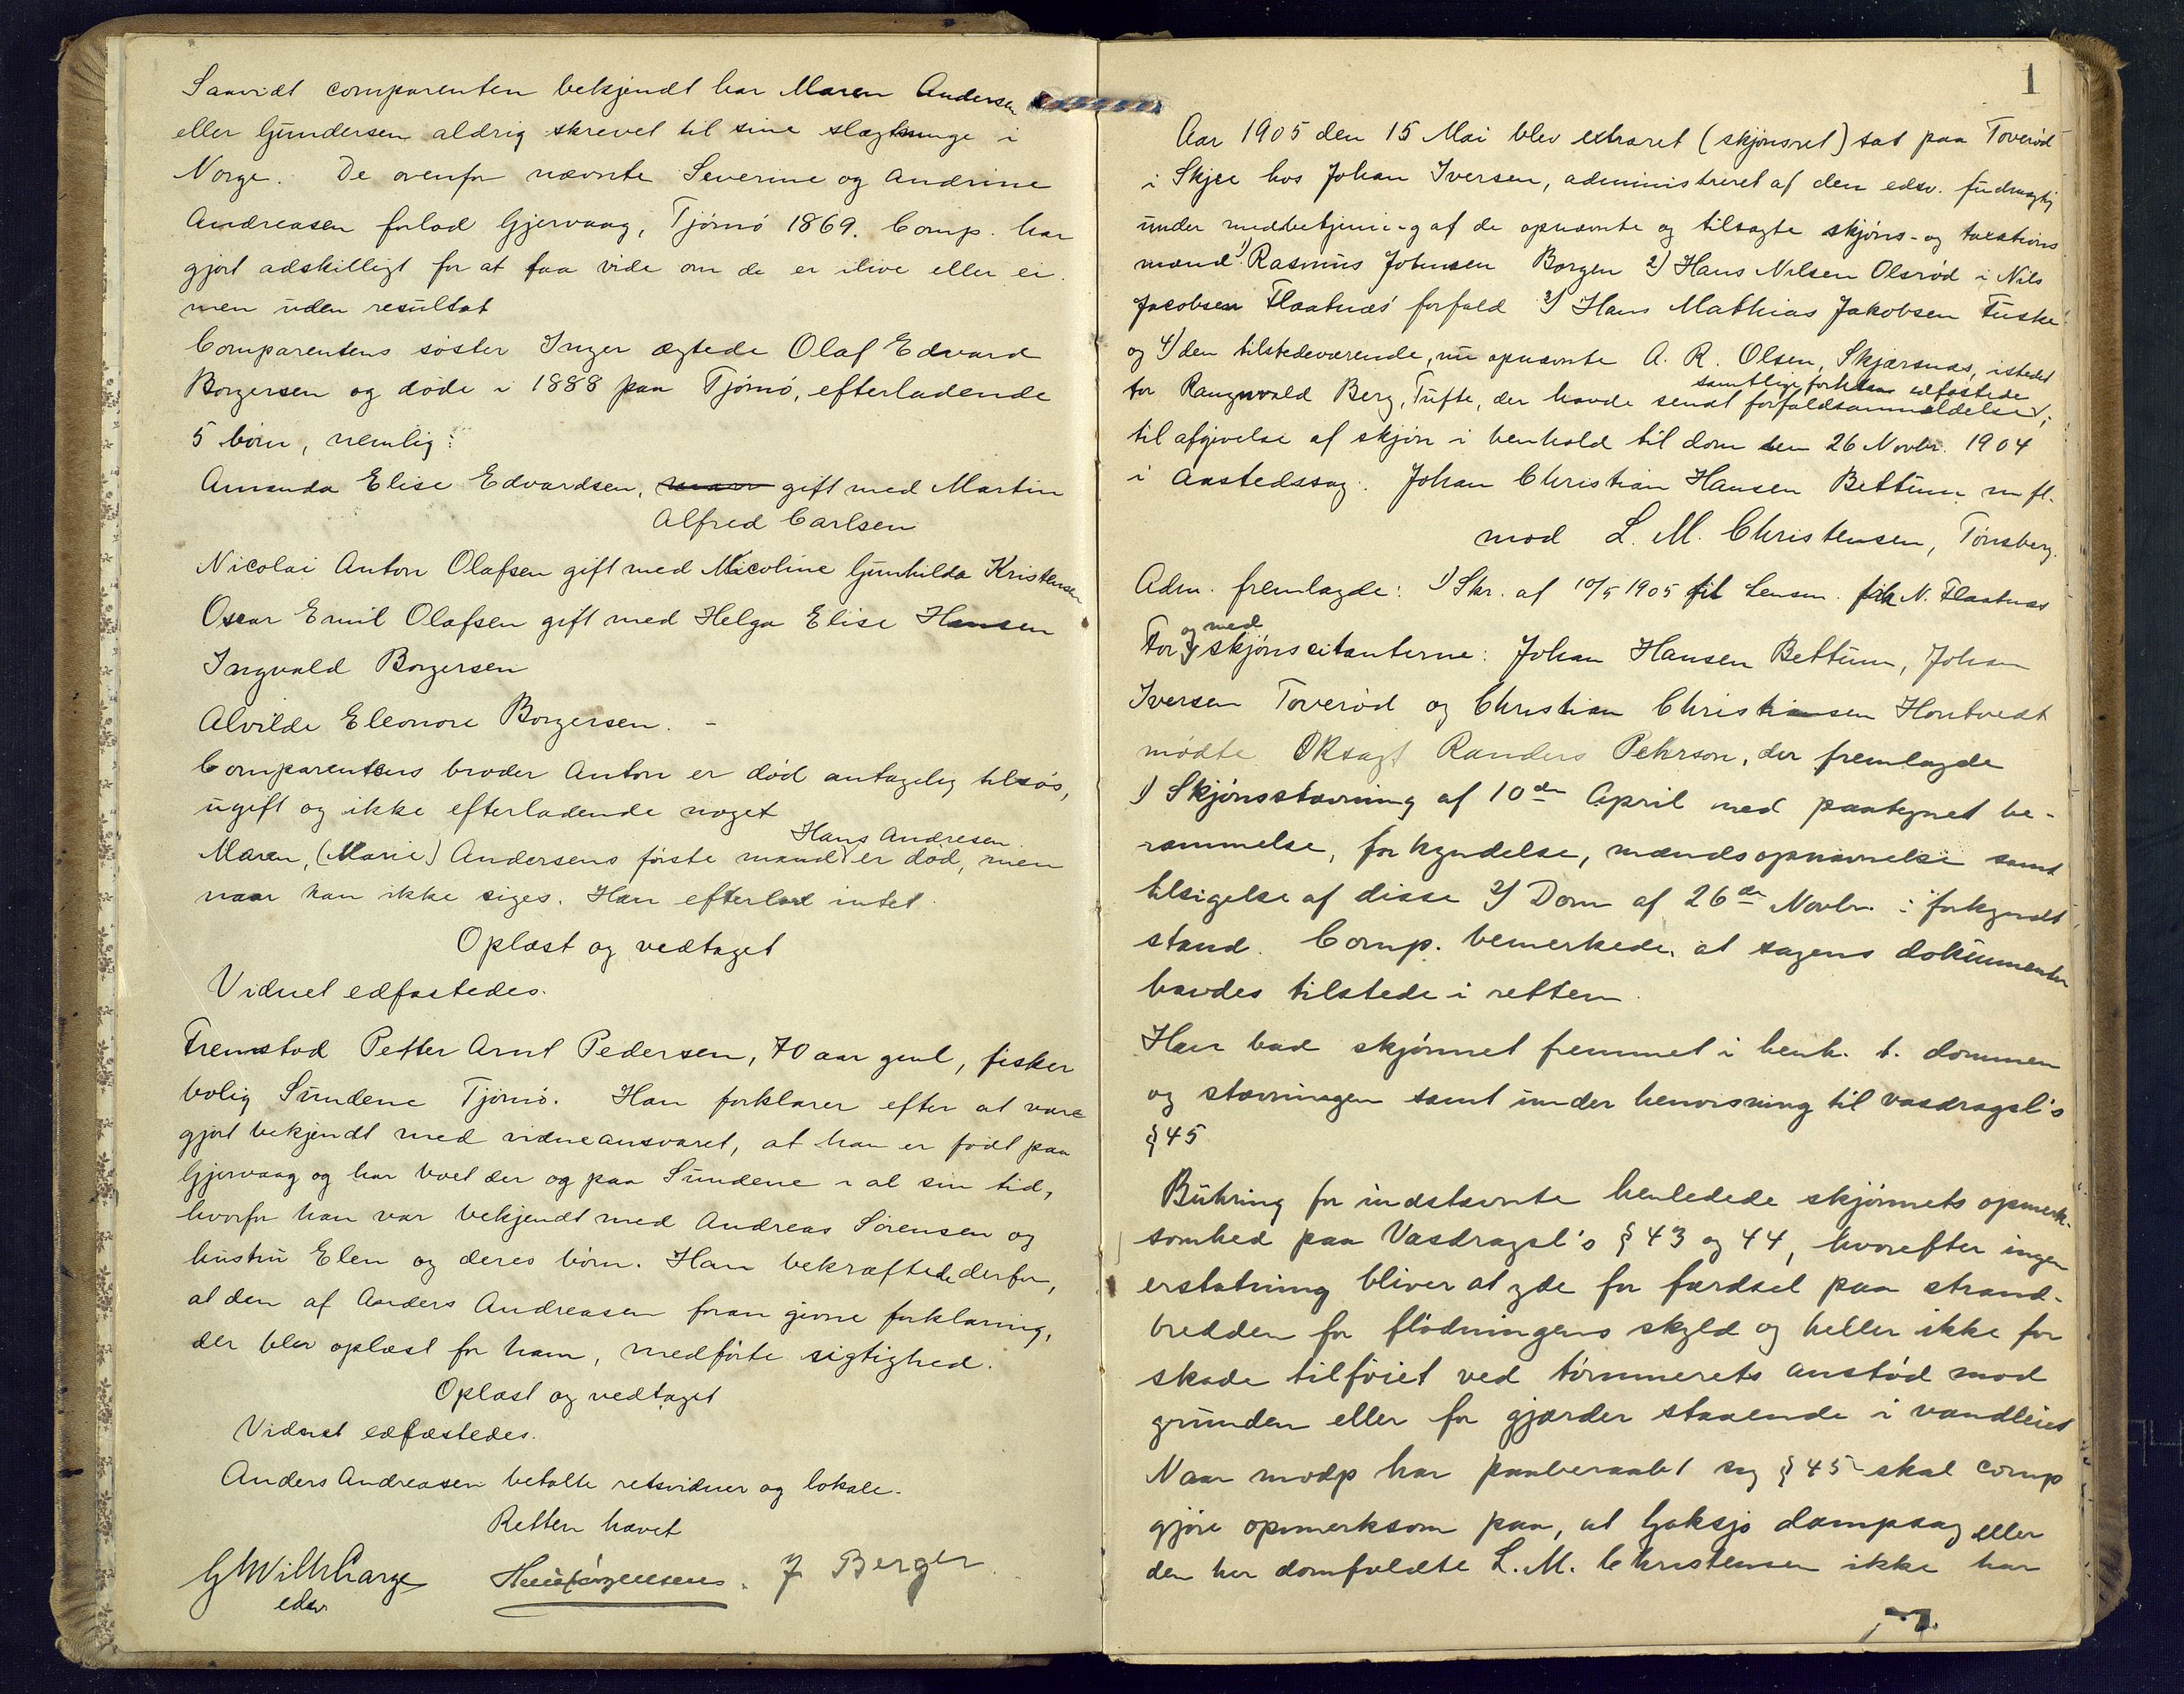 Saavidt comparenten bekjendt har Maren Andersen
eller Gundersen aldrig skrevet til sine slægtninge i
Norge. De ovenfor nævnte Severine og Andrine
Andreasen forlod Gjervaag, Tjømø 1869. Comp. har
gjort adskilligt for at faa vide om de er ilive eller ei
men uden resultat
Comparentens søster Inger ægtede Olaf Edvard
Borgersen og døde i 1888 paa Tjømø, efterladende
5 børn, nemlig:
Amanda Elise Edvardsen, gift med Martin
Alfred Carlsen
Nicolai Anton Olafsen gift med Nicoline Gunhilda Kristensen
Oscar Emil Olafsen gift med Helga Elise Hansen
Ingvald Borgersen
Alvilde Eleonore Borgersen. -
Comparentens broder Anton er død antagelig tilsøs,
ugift og ikke efterladende noget
Hans Andresen
Maren, (Marie) Andersens første mand er død, men
naar kan ikke siges. Han efterlod intet.
Oplæst og vedtaget
Vidnet edfæstedes.
Fremstod Petter Arnt Pedersen, 70 aar gml, fisker
bolig Sundene Tjømø. Han forklarer efter at være
gjort bekjendt med vidneansvaret, at han er født paa
Gjervaag og har boet der og paa Sundene i al sin tid,
hvorfor han var bekjendt med Andreas Sørensen og
hustru Elen og deres børn. Han bekræftede derfor,
at den af Anders Andreasen foran givne forklaring,
der blev oplæst for ham, medførte rigtighed.
Oplæst og vedtaget
Vidnet edfæstedes.
Anders Andreasen betalte retsvidner og lokale.
Retten hævet
edsv. J Berger
1
Aar 1905 den 15 Mai blev extraret (skjønsret) sat paa Toverød
i Skjee hos Johan Iversen, administreret af den edsv. fuldmægtig
under medbetjening af de opnævnte og tilsagte skjøns- og taxations
mænd 1) Rasmus Johnsen Borgen 2) Hans Nilsen Olsrød i Nils
Jacobsen Flaatnæs' forfald 3) Hans Mathias Jakobsen Fuske
og 4) den tilstedeværende, nu opnævnte A. R. Olsen, Skjærsnæs, istedet
samtlige forhaan edfæstede
for Rangvald Berg, Tufte, der havde sendt forfaldsanmeldelse;
til afgivelse af skjøn i henhold til dom den 26 Novbr. 1904
i Aastedssag. Johan Christian Hansen Bettum m fl.
mod L. M. Christensen, Tønsberg.
Adm. fremlagde: 1) Skr. af 10/5 1905 fra N. Flaatnæs
og med
For skjønscitanterne: Johan Hansen Bettum, Johan
Iversen Toverød og Christian Christiansen Hontvedt
mødte ORsagf Randers Pehrson, der fremlagde
1) Skjønsstævning af 10de April med paategnet be-
rammelse, forkyndelse, mændsopnævnelse samt
tilsigelse af disse 2) Dom af 26de Novbr. i forkyndt
stand. Comp. bemerkede, at sagens dokumenter
havdes tilstede i retten.
Han bad skjønnet fremmet i henh. t. dommen
og stævningen samt under henvisning til vasdragsl's
§ 45
Bühring for indstævnte henledede skjønnets opmerk-
somhed paa Vasdragsl's § 43 og 44, hvorefter ingen
erstatning bliver at yde for færdsel paa strand-
bredden for flødningens skyld og heller ikke for
skade tilføiet ved tømmerets anstød mod
grunden eller for gjærder staaende i vandleiet
Naar modp har paaberaabt sig § 45 skal comp
gjøre opmerksom paa, at Goksjø dampsag eller
den her domfældte L. M. Christensen ikke har